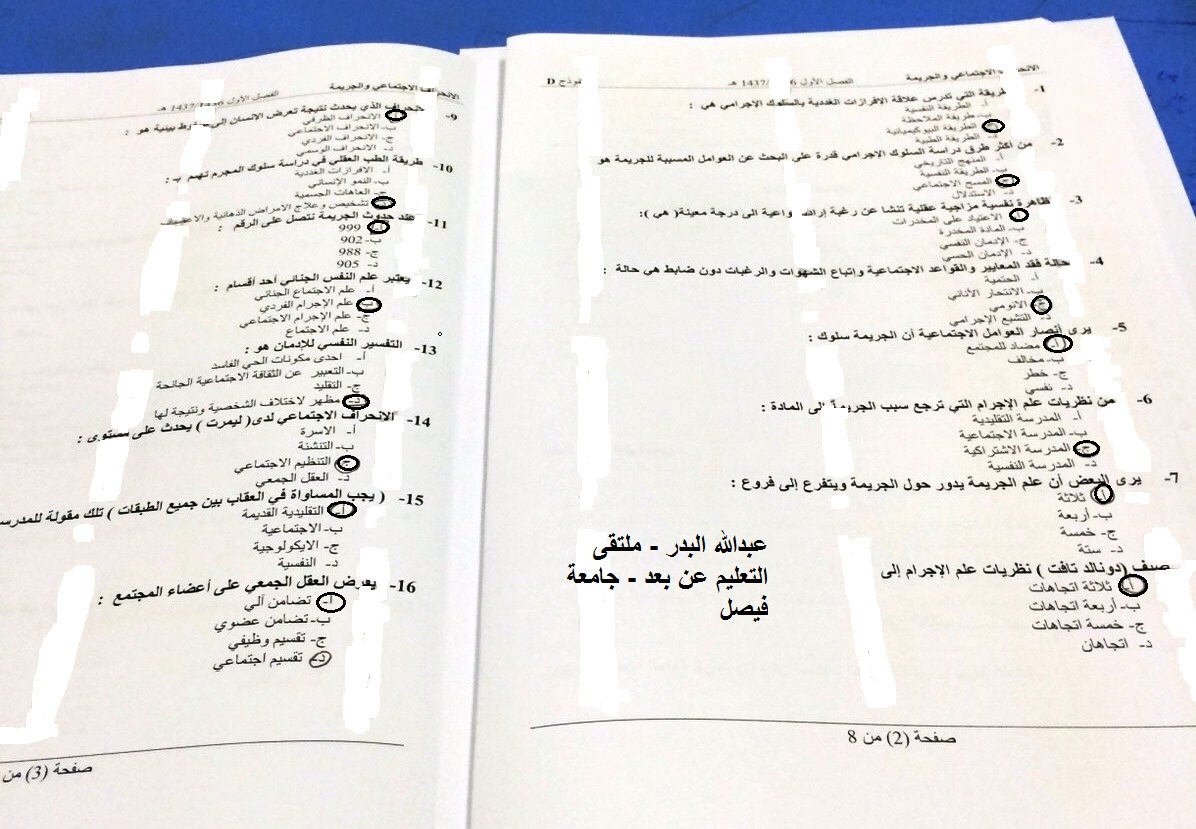 الاجتماعي والجريمة
الفصل الأول 1437/ هـ
نموذج D
1- طريقة التي تدرس علاقة الافرازات الغددية بالسلوك الإجرامي هي :
أ- الطريقة النفسية
ب- طريقة الملاحظة
الطريقة البيوكيميائية
د- الطريقة الطبية
2- من أكثر طرق دراسة السلوك الإجرامي قدرة على البحث عن العوامل المسببة للجريمة هو
أ- المنهج التاريخي
ب- الطريقة النفسية
ج- المسح الاجتماعي
د- الاستدلال
3- ظاهرة نفسية مزاجية عقلية تنشا عن رغبة واعية الى درجة معينة( هي ):
أ- الاعتياد على المخدرات
ب- المادة المخدرة
ج- الإدمان النفسي
د- الإدمان الحسي
4- حالة فقد المعايير والقواعد الاجتماعية وإتباع الشهوات والرغبات دون ضابط هي حالة :
أ- الحتمية
ب- الانتحار الأناني
ج- الانومي
د- التشبع الإجرامي
5- يرى أنصار العوامل الاجتماعية أن الجريمة سلوك :
أ- مضاد للمجتمع
ب- مخالف
ج- خطر
د- نفسي
6- من نظريات علم الإجرام التي ترجع سبب الجريمة إلى المادة :
أ- المدرسة التقليدية
ب- المدرسة الاجتماعية
ج- المدرسة الاشتراكية
د- المدرسة النفسية
7- يرى البعض أن علم الجريمة يدور حول الجريمة ويتفرع إلى فروع :
أ- ثلاثة
ب- أربعة
ج- خمسة
د- ستة
صنف (دونالد تافت ) نظريات علم الإجرام إلى
أ- ثلاثة اتجاهات
ب- أربعة اتجاهات
ج- خمسة اتجاهات
د- اتجاهان
عبدالله البدر - ملتقى
التعليم عن بعد - جامعة
فيصل
صفحة (2) من 8
الانحراف الاجتماعي والجريمة
الفصل الأول 1437/ هـ
9- الانحراف الذي يحدث نتيجة تعرض الانسان إلى بيئية هو :
أ- الانحراف الظرفي
ب- الانحراف الاجتماعي
ج- الانحراف الفردي
د- الانحراف الوسمي
10- طريقة الطب العقلي في دراسة سلوك المجرم تهتم بـ :
أ- الافرازات الغددية
ب- النمو الإنساني
ج- العاهات الجسمية
تشخيص وعلاج الامراض الذهانية
11- عند حدوث الجريمة نتصل على الرقم :
أ- 999
ب- 902
ج- 988
د- 905
12- يعتبر علم النفس الجنائي أحد أقسام :
أ- علم الاجتماع الجنائي
ب- علم الإجرام الفردي
ج- علم الإجرام الاجتماعي
د- علم الاجتماع
13- التفسير النفسي للإدمان هو :
أ- احدى مكونات الحي الفاسد
ب- التعبير عن الثقافة الاجتماعية الجانحة
ج- التقليد
د- مظهر لاختلاف الشخصية ونتيجة لها
14- الانحراف الاجتماعي لدى( ليمرت ) يحدث على مستوى :
أ- الاسرة
ب- التنشئة
ج- التنظيم الاجتماعي
د- العقل الجمعي
15- ( يجب المساواة في العقاب بين جميع الطبقات ) تلك مقولة للمدرسة
أ- التقليدية القديمة
ب- الاجتماعية
ج- الايكولوجية
د- النفسية
16- يعرض العقل الجمعي على أعضاء المجتمع :
أ- تضامن آلي
ب- تضامن عضوي
ج- تقسيم وظيفي
د- تقسيم اجتماعي
صفحة (3) من